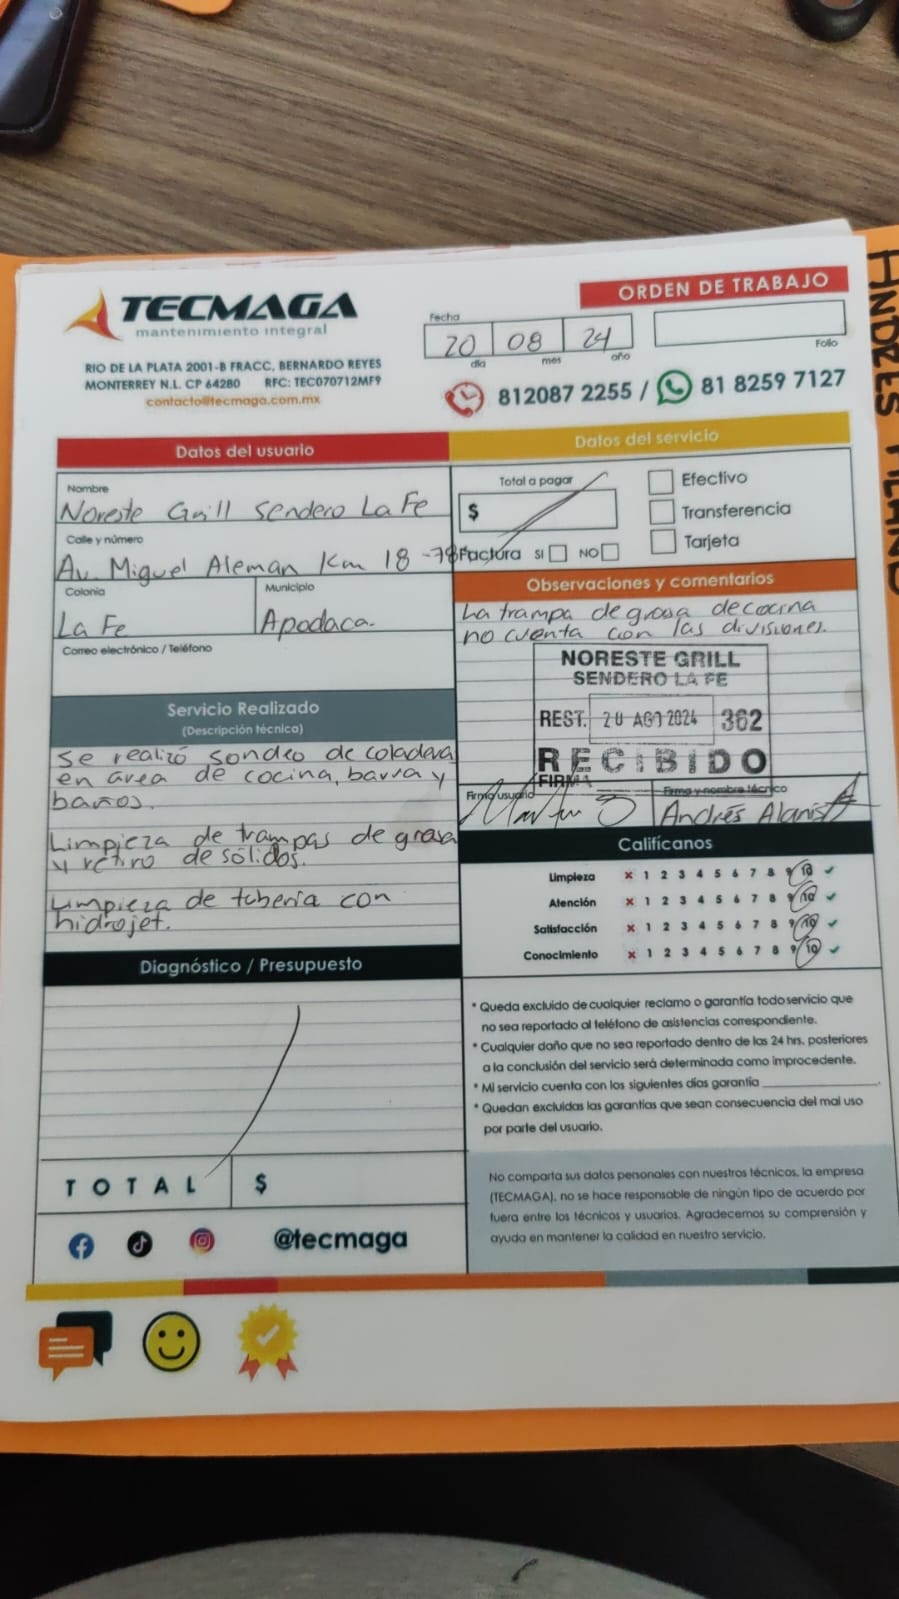 TECMAGA
mantenimiento integral
RIO DE LA PLATA 2001-B FRACC. BERNARDO REYES
MONTERREY N.L. CP 64280 RFC: TEC070712MF9
contacto@tecmaga.com.mx
ORDEN DE TRABAJO
Fecha
20 08 24
día mes año
Folio
812087 2255 / 81 8259 7127
ANDRES
Datos del usuario
Nombre
Noreste Grill Sendero La Fe
Calle y número
Av. Miguel Aleman Km 18 -78
Colonia
La Fe
Municipio
Apodaca.
Correo electrónico / Teléfono
Datos del servicio
Total a pagar
$
Efectivo
Transferencia
Tarjeta
Factura SI NO
Observaciones y comentarios
La trampa de grasa de cocina
no cuenta con las divisiones.
NORESTE GRILL
SENDERO LA FE
REST. 20 AGO 2024 362
RECIBIDO
FIRMA
Firma usuario
Firma y nombre técnico
Andrés Alanis
Servicio Realizado
(Descripción técnica)
Se realizó sondeo de coladera
en área de cocina, barra y
baños.
Limpieza de trampas de grasa
y retiro de sólidos.
Limpieza de tubería con
hidrojet.
Califícanos
Limpieza x 1 2 3 4 5 6 7 8 9 10 ✓
Atención x 1 2 3 4 5 6 7 8 9 10 ✓
Satisfacción x 1 2 3 4 5 6 7 8 9 10 ✓
Conocimiento x 1 2 3 4 5 6 7 8 9 10 ✓
Diagnóstico / Presupuesto
TOTAL $
@tecmaga
* Queda excluido de cualquier reclamo o garantía todo servicio que
no sea reportado al teléfono de asistencias correspondiente.
* Cualquier daño que no sea reportado dentro de las 24 hrs. posteriores
a la conclusión del servicio será determinada como improcedente.
* Mi servicio cuenta con los siguientes días garantía
* Quedan excluidas las garantías que sean consecuencia del mal uso
por parte del usuario.
No comparta sus datos personales con nuestros técnicos, la empresa
(TECMAGA), no se hace responsable de ningún tipo de acuerdo por
fuera entre los técnicos y usuarios. Agradecemos su comprensión y
ayuda en mantener la calidad en nuestro servicio.